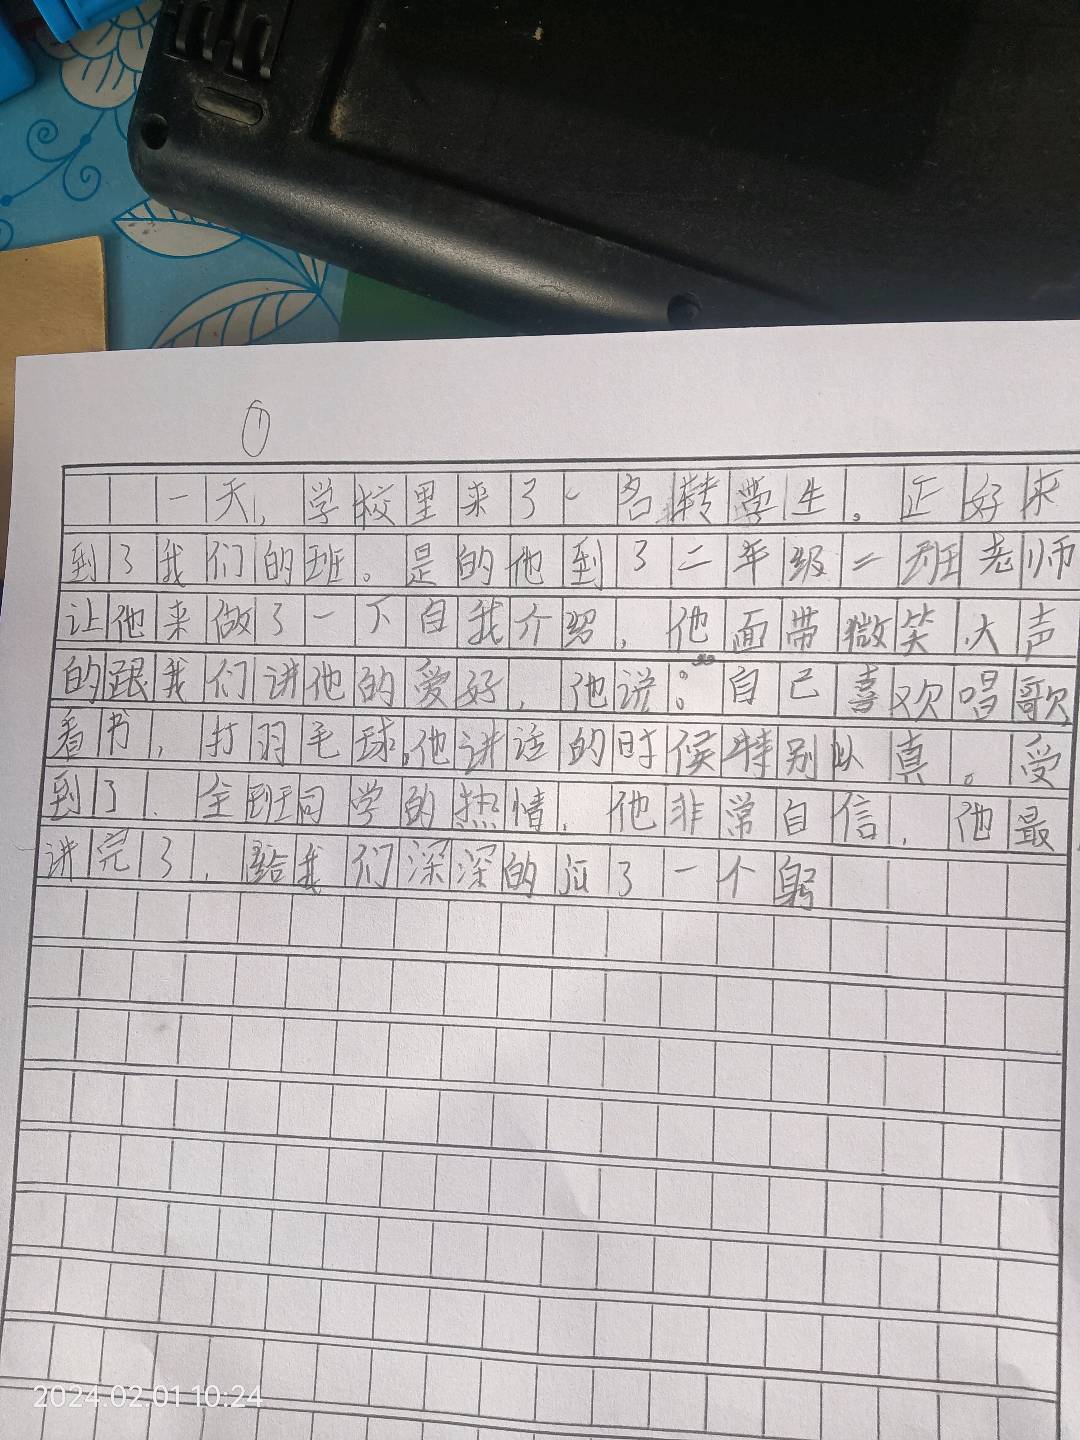 ①
一天，学校里来了一名转学生。正好来
到了我们的班。是的他到了二年级二班老师
让他来做了一下自我介绍，他面带微笑，大声
的跟我们讲他的爱好，他说：自己喜欢唱歌
看书，打羽毛球。他讲话的时候特别认真。受
到了．全班同学的热情，他非常自信，他最
讲完了，给我们深深的了一个躬
2024.02.01 10:24